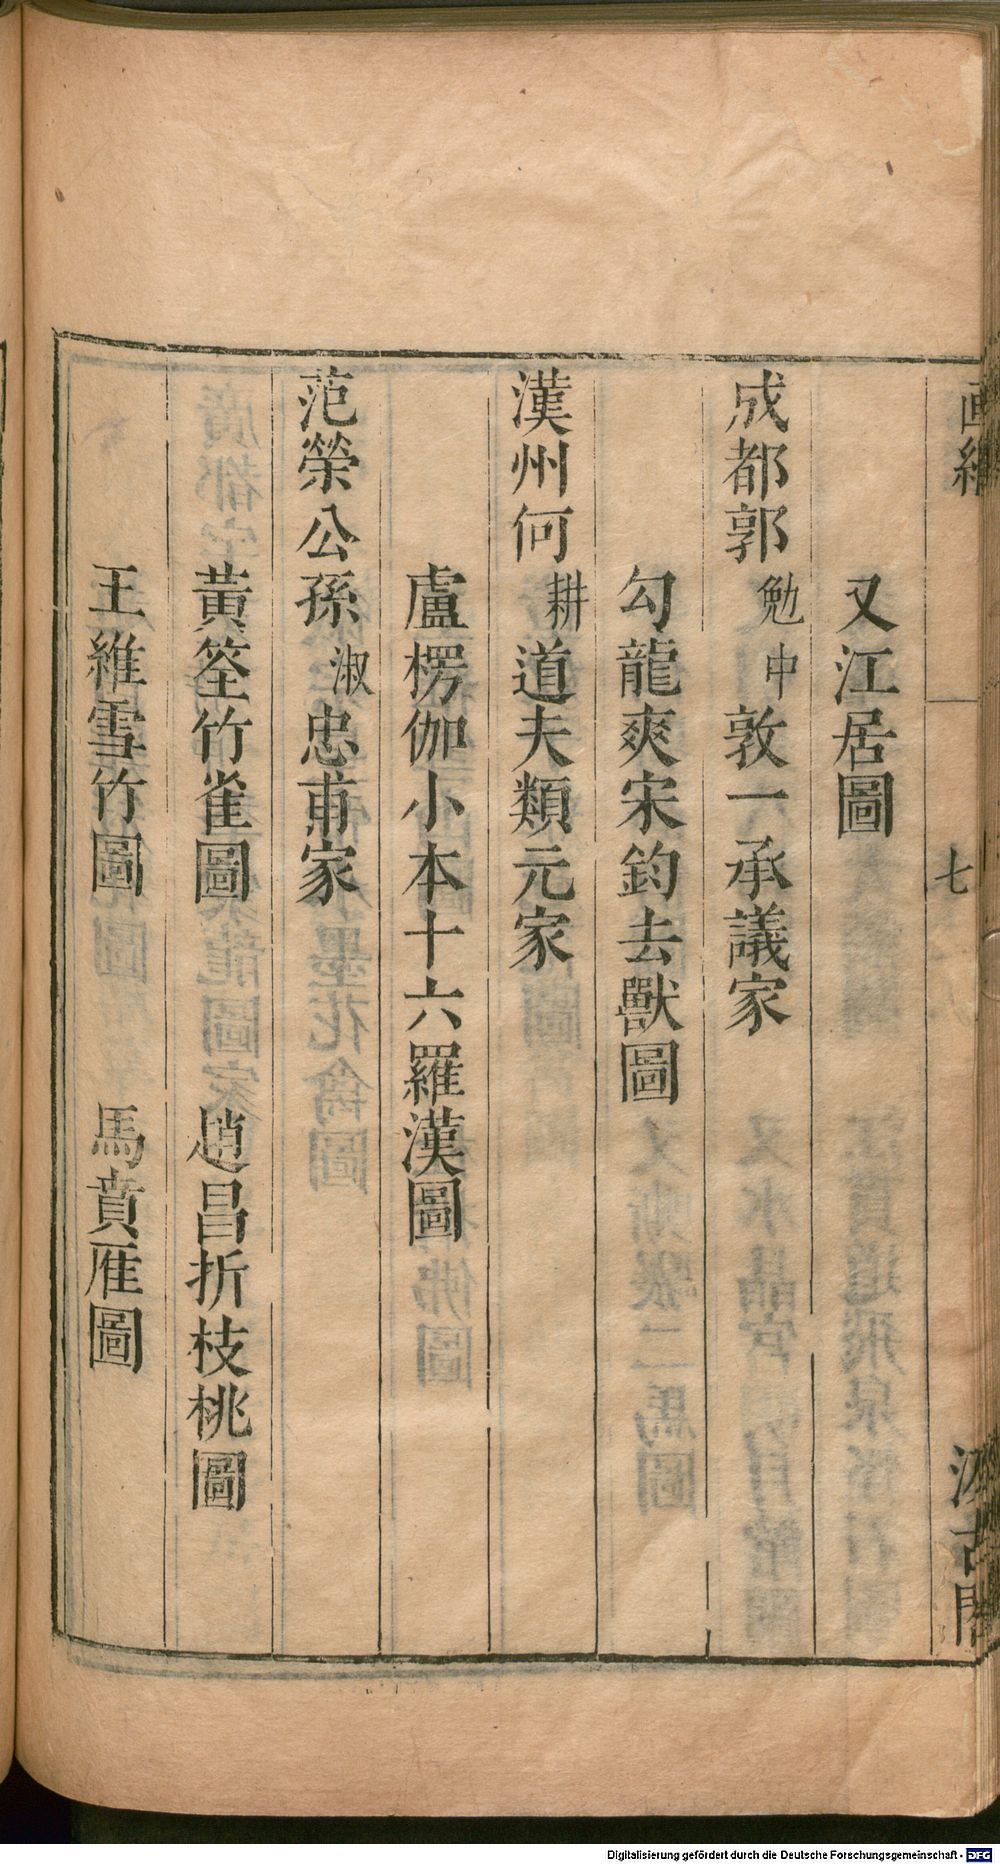 又江居圖
成都郭勉中敦一承議家
勾龍爽宋鈞去獸圖
漢州何耕道夫類元家
盧楞伽小本十六羅漢圖
范榮公孫淑忠甫家
黃筌竹雀圖 趙昌折枝桃圖
王維雪竹圖 馬賁雁圖
七
汲古閣
Digitalisierung gefördert durch die Deutsche Forschungsgemeinschaft - DFG